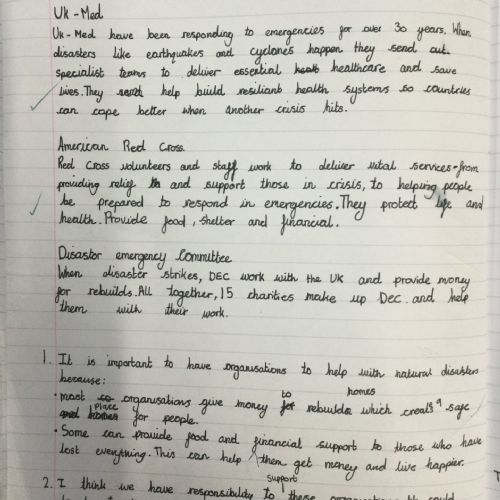 UK-Med
UK-Med have been responding to emergencies for over 30 years. When
disasters like earthquakes and cyclones happen they send out
specialist teams to deliver essential healthcare and save
lives. They help build resiliant health systems so countries
can cope better when another crisis hits.
American Red Cross
Red Cross volunteers and staff work to deliver vital services-from
providing relief and support those in crisis, to helping people
be prepared to respond in emergencies. They protect life and
health. Provide food, shelter and financial.
Disaster emergency Committee
When disaster strikes, DEC work with the UK and provide money
for rebuilds. All together, 15 charities make up DEC. and help
them with their work.
1. It is important to have organisations to help with natural disasters
because:
• most organisations give money to rebuild homes which creats a safe
place for people.
• Some can provide food and financial support to those who have
lost everything. This can help them get money and live happier.
2. I think we have responsibility to support these